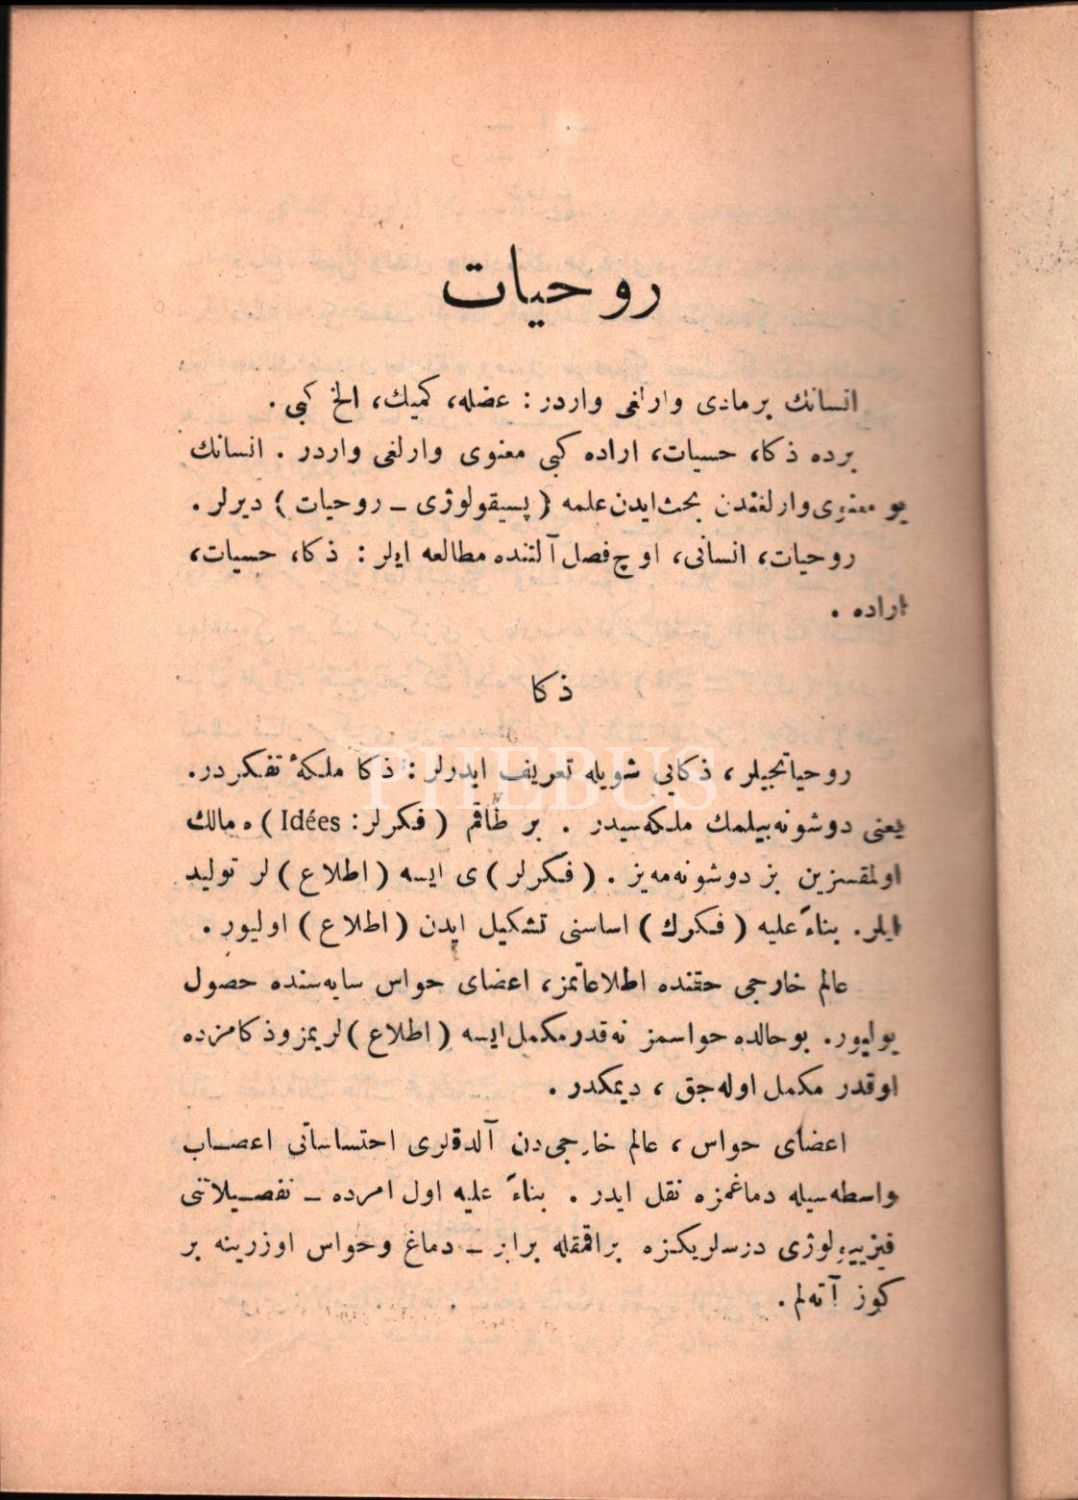 روحيات
انسانك برمادى وارلغى واردر : عضله، كميك، الخ كبى .
برده ذكا، حسيات، اراده كبى معنوى وارلغى واردر . انسانك
بو معنوى وارلغندن بحث ايدن علمه ( پسيقولوژى ــ روحيات ) ديرلر .
روحيات، انسانى، اوچ فصل آلتنده مطالعه ايلر : ذكا، حسيات،
اراده .
ذكا
روحياتجيلر ، ذكايى شويله تعريف ايدرلر : ذكا ملكهٔ تفكردر .
يعنى دوشونه بيلمك ملكه سيدر . بر طاقم ( فكرلر : Idées ) ه مالك
اولمقسزين بز دوشونه مه يز . ( فكرلر ) ى ايسه ( اطلاع ) لر توليد
ايلر. بناءً عليه ( فكرك ) اساسنى تشكيل ايدن ( اطلاع ) اوليور .
عالم خارجى حقنده اطلاعاتمز، اعضاى حواس سايه سنده حصول
بوليور. بوحالده حواسمز نه قدر مكمل ايسه ( اطلاع ) لريمز و ذكامزده
اوقدر مكمل اوله جق ، ديمكدر .
اعضاى حواس ، عالم خارجى دن آلدقلرى احتساساتى اعصاب
واسطه سيله دماغمزه نقل ايدر . بناءً عليه اول امرده ــ تفصيلاتنى
فيزييولوژى درسلريكزه براقمقله برابر ــ دماغ و حواس اوزرينه بر
كوز آته لم .
PHEBUS